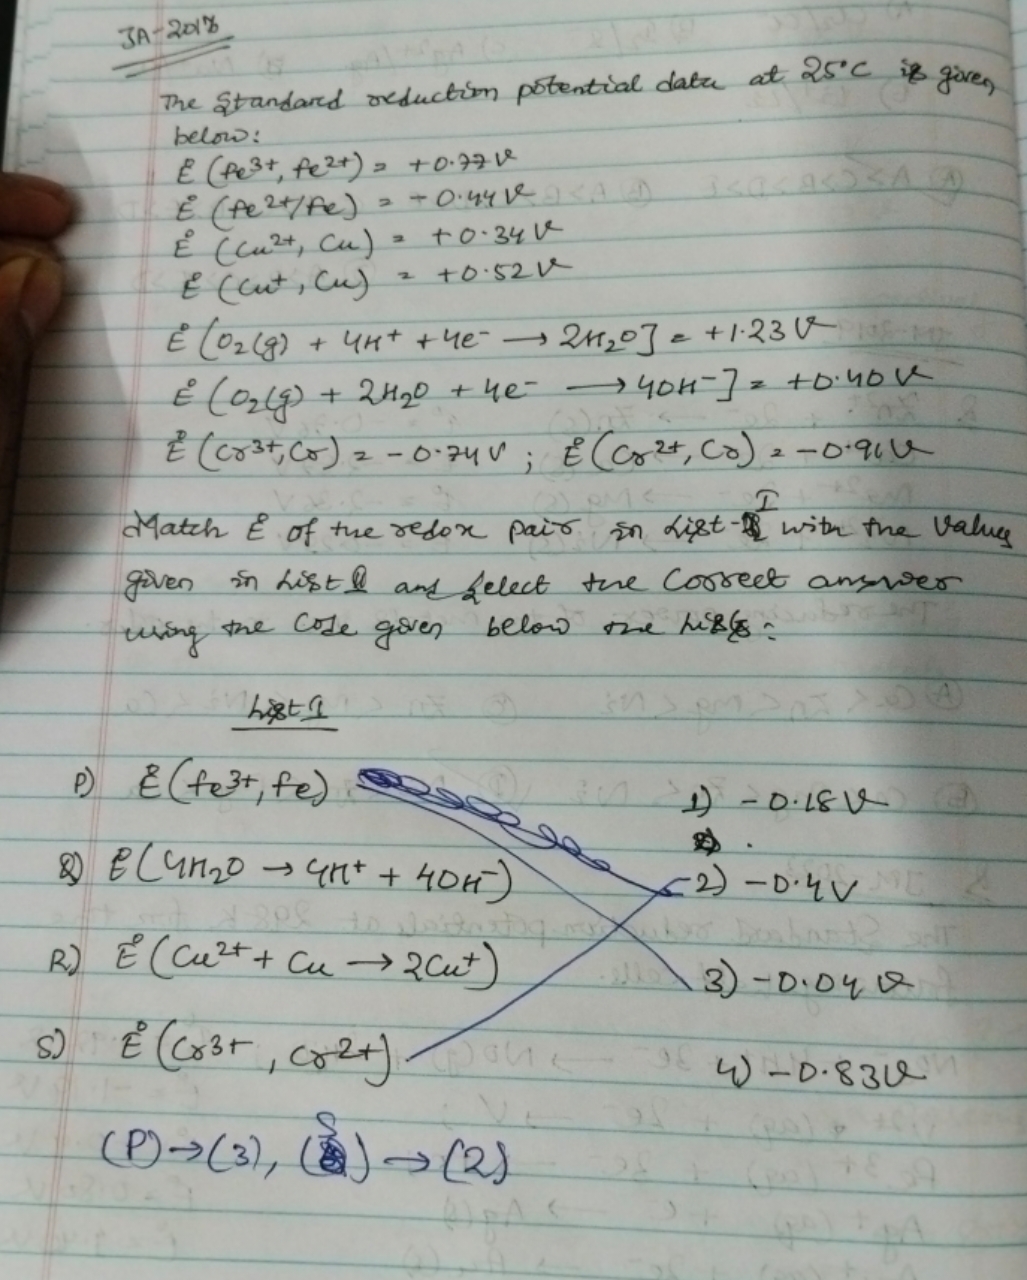 JA-2018
The Standard reduction potential data at 25°C is given
below:
E° (Fe3+, Fe2+) = +0.77V
E° (Fe2+/Fe) = -0.44V
E° (Cu2+, Cu) = +0.34V
E° (Cu+, Cu) = +0.52V
E° [O2(g) + 4H+ + 4e- → 2H2O] = +1.23V
E° [O2(g) + 2H2O + 4e- → 4OH-] = +0.40V
E° (Cr3+, Cr) = -0.74V ; E° (Cr2+, Cr) = -0.91V
Match E° of the redox pair in List-I with the Values
given in List II and Select the Correct answer
using the Code given below the lists:
List I
P) E° (Fe3+, Fe)
1) -0.18V
Q) E° (4H2O → 4H+ + 4OH-)
2) -0.4V
R) E° (Cu2+ + Cu → 2Cu+)
3) -0.04V
S) E° (Cr3+, Cr2+)
4) -0.83V
(P)→(3), (S)→(2)